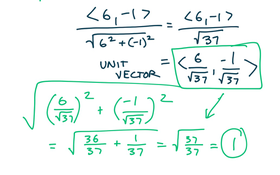 <6, -1> / √(6² + (-1)²) = <6, -1> / √37
UNIT VECTOR = <6/√37, -1/√37>
√((6/√37)² + (-1/√37)²)
= √(36/37 + 1/37) = √(37/37) = 1